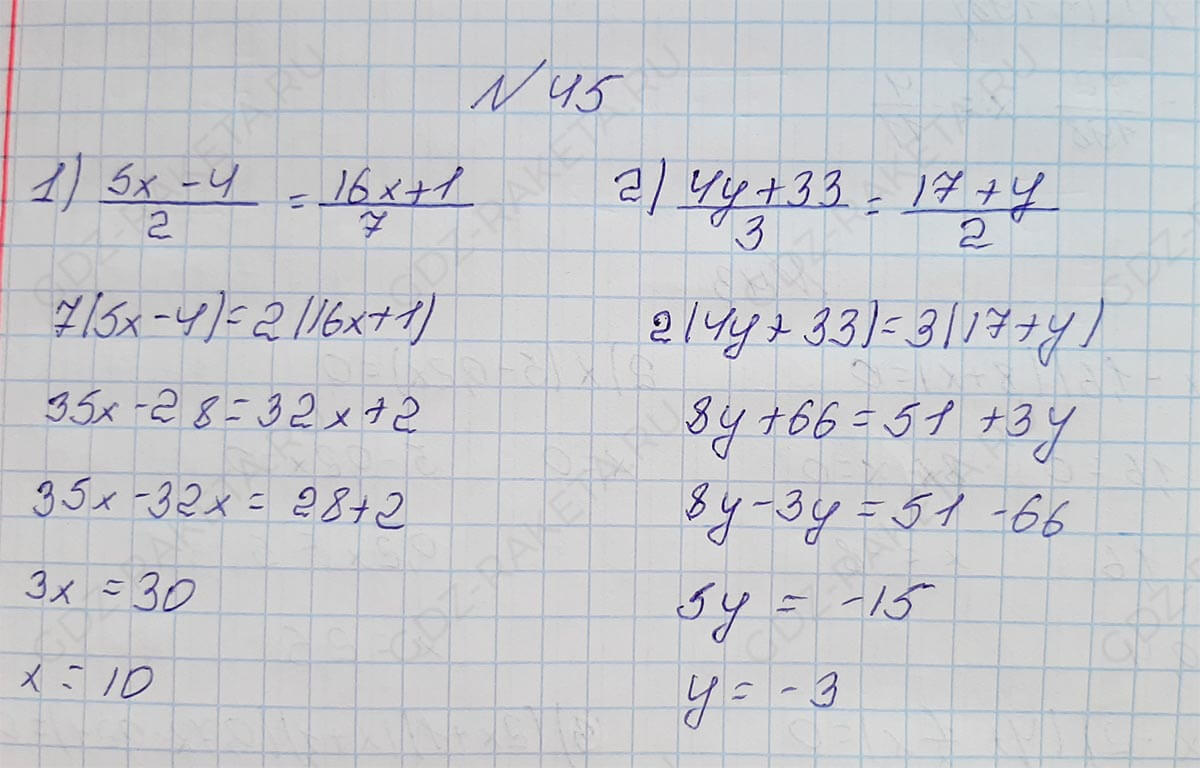 № 45
1) (5x - 4)/2 = (16x + 1)/7
7(5x - 4) = 2(16x + 1)
35x - 28 = 32x + 2
35x - 32x = 28 + 2
3x = 30
x = 10
2) (4y + 33)/3 = (17 + y)/2
2(4y + 33) = 3(17 + y)
8y + 66 = 51 + 3y
8y - 3y = 51 - 66
5y = -15
y = -3
GDZ-RAKETA.RU